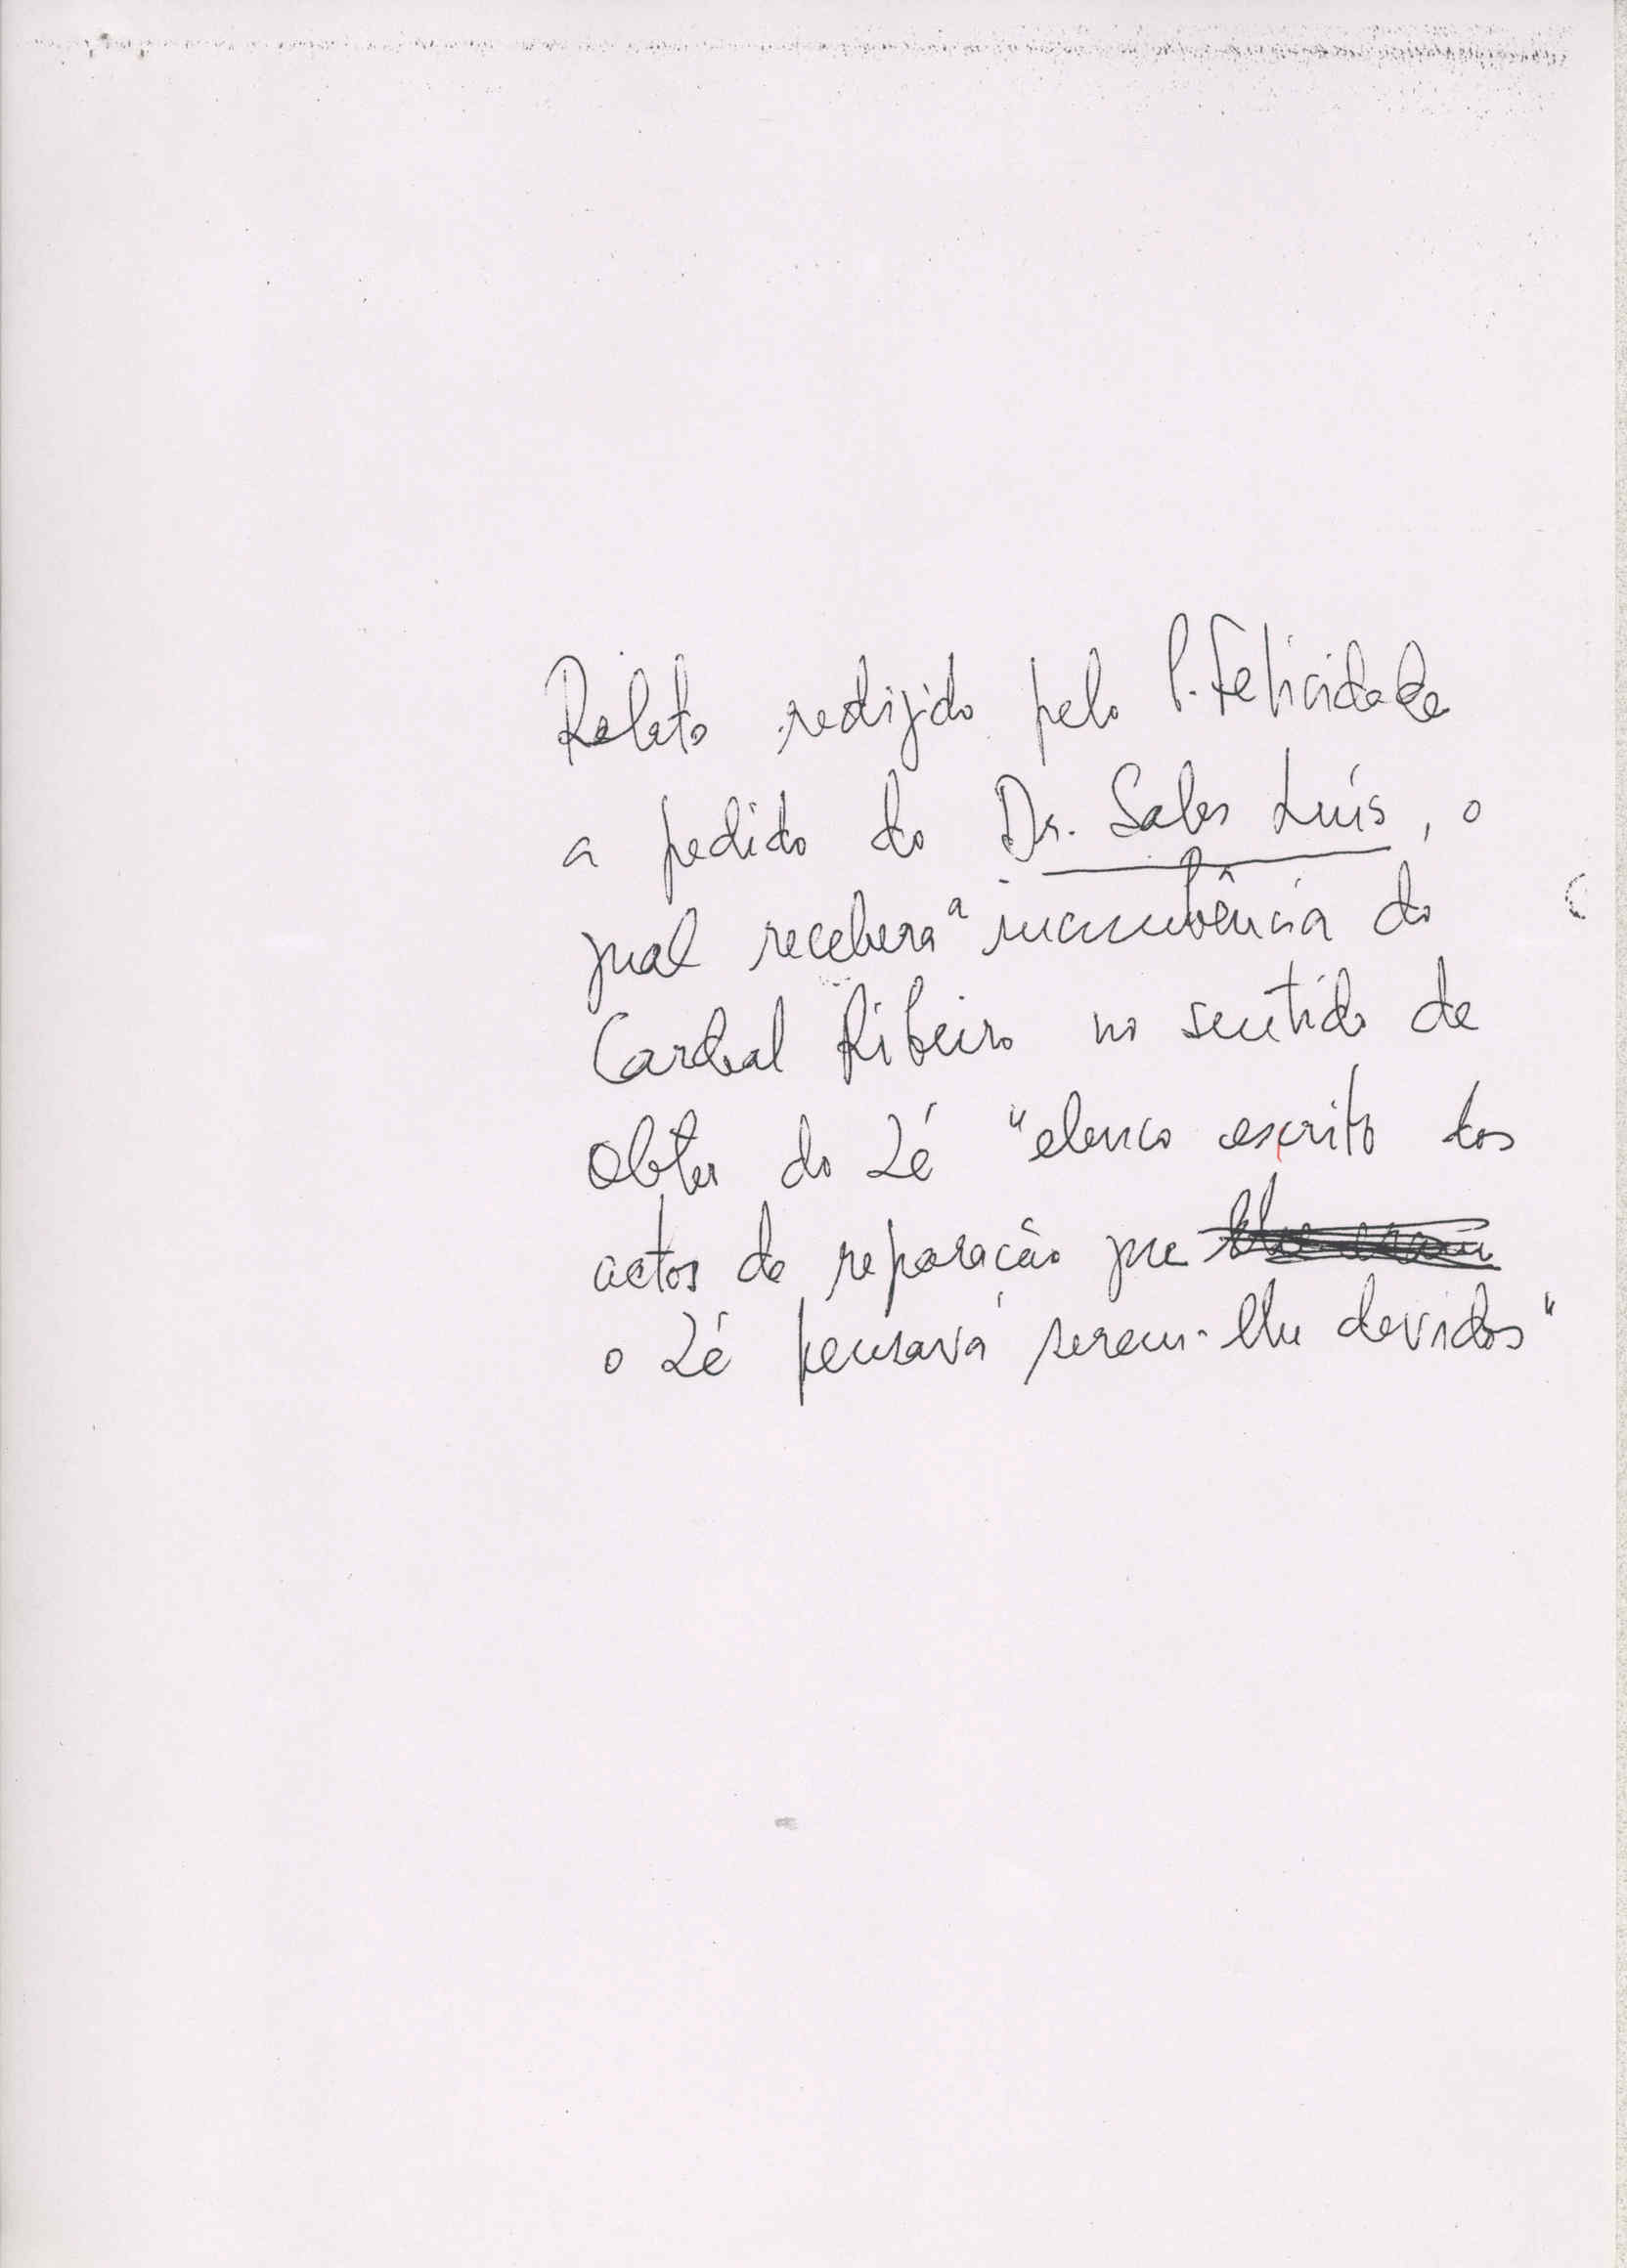 Relato redigido pelo P. Felicidade
a pedido do Dr. Sales Luís, o
qual recebera a incumbência do
Cardeal Ribeiro no sentido de
obter do Zé "elenco escrito dos
actos de reparação que
o Zé pensava serem-lhe devidos"